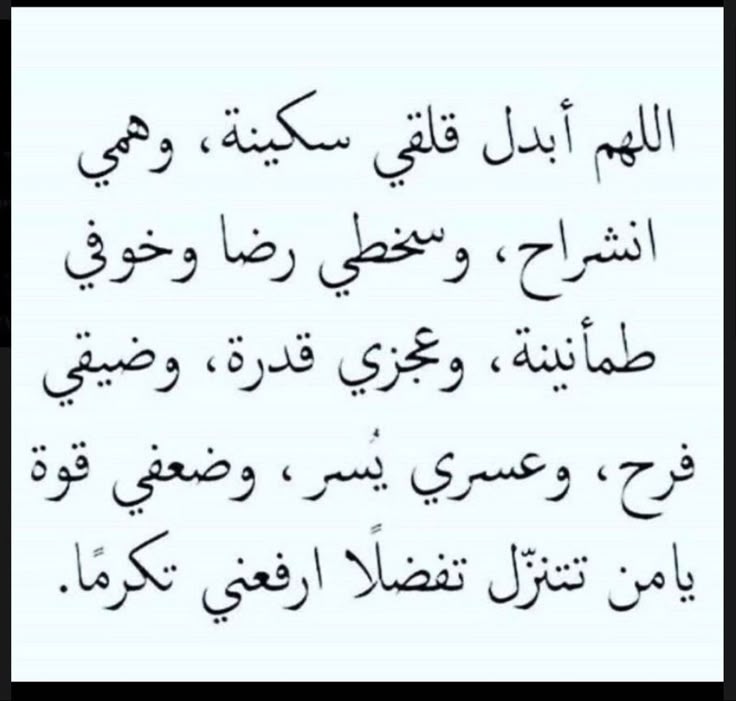 اللهم أبدل قلقي سكينة، وهمي
انشراح، وسخطي رضا وخوفي
طمأنينة، وعجزي قدرة، وضيقي
فرح، وعسري يُسر، وضعفي قوة
يامن تتنزّل تفضلًا ارفعني تكرمًا.